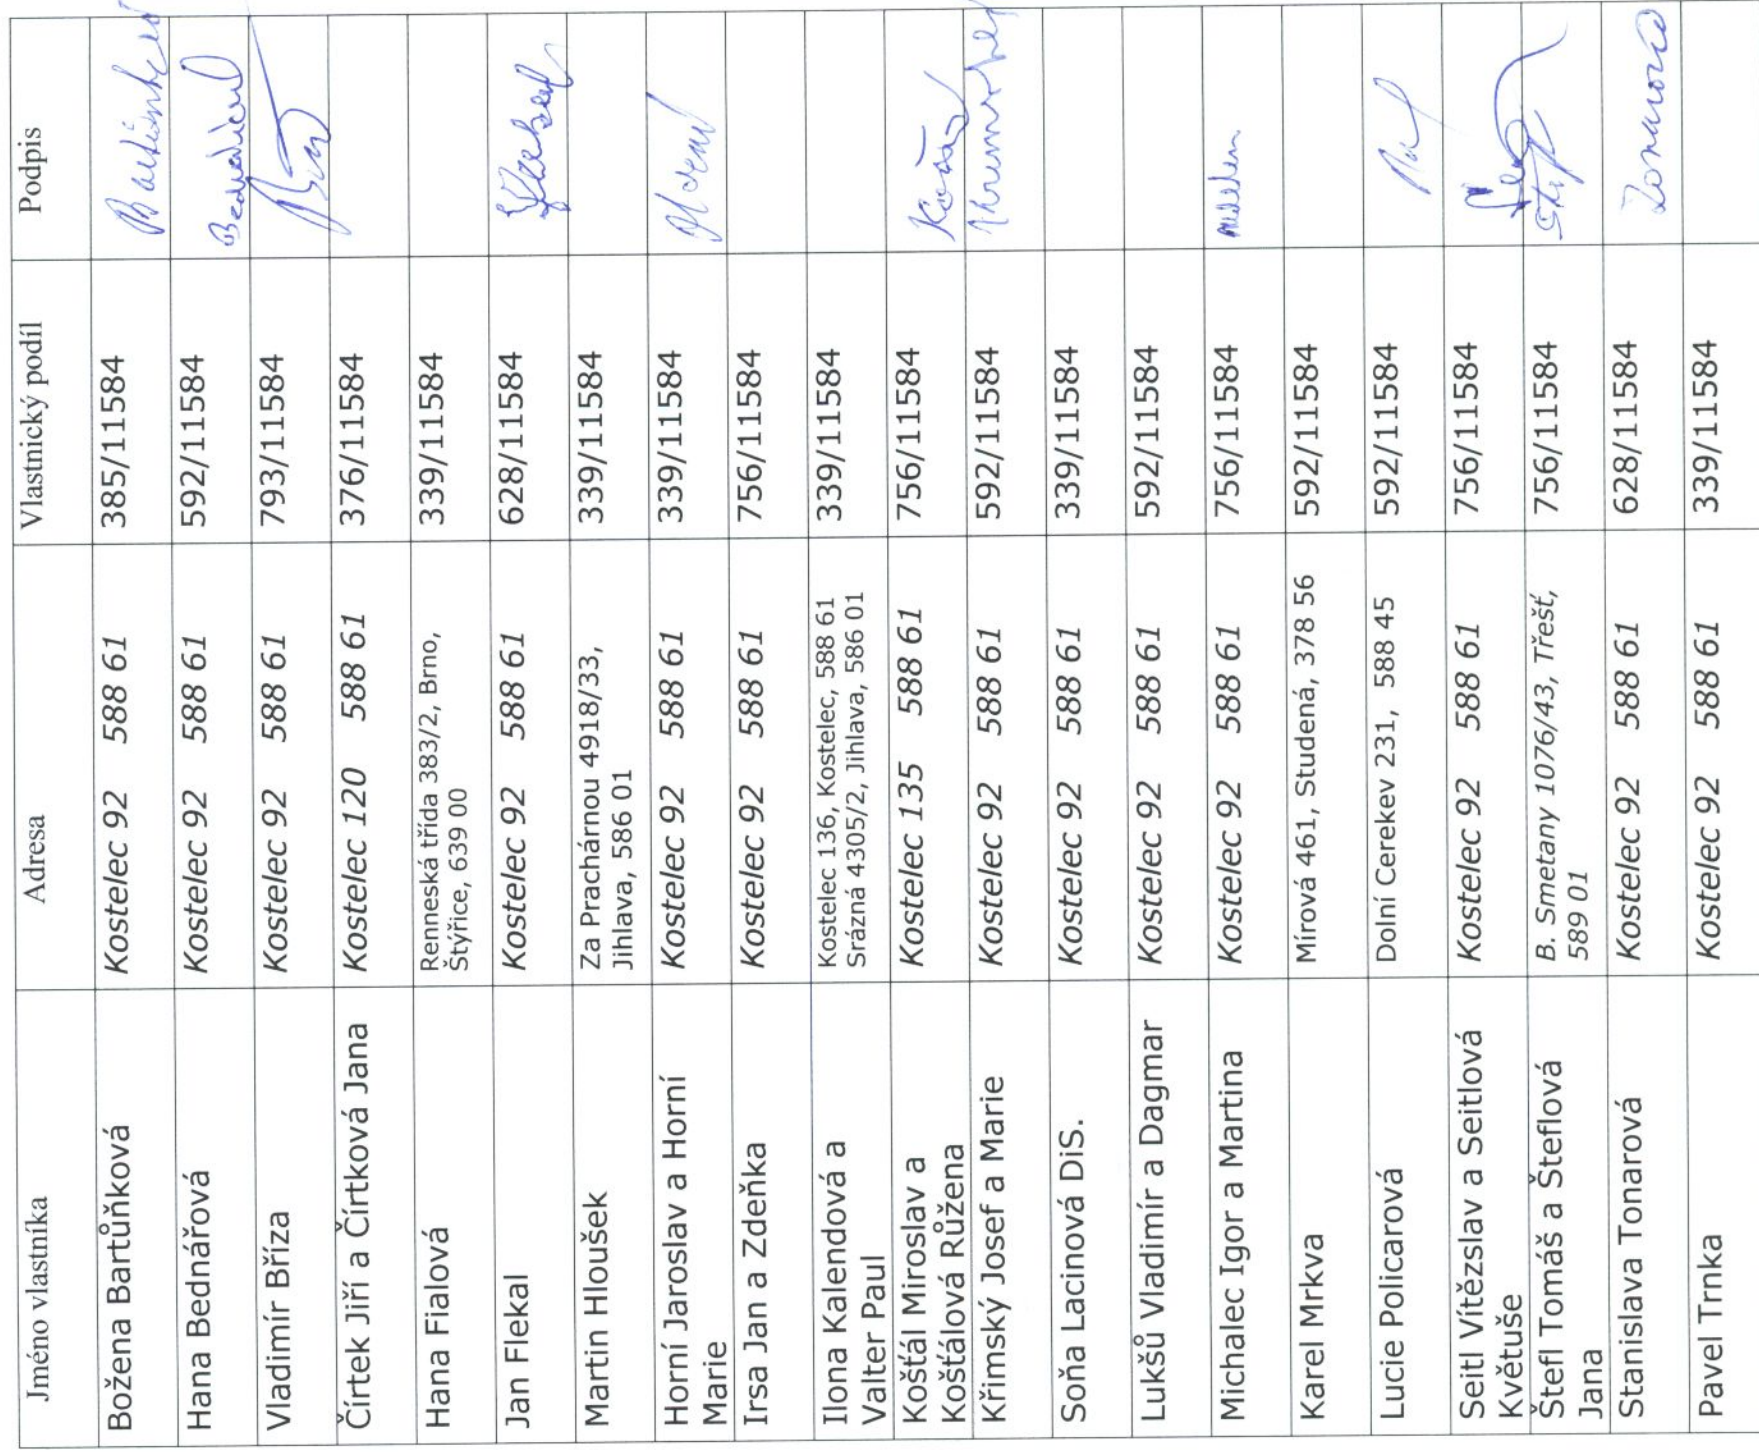 Jméno vlastníka Adresa Vlastnický podíl Podpis
Božena Bartůňková Kostelec 92 588 61 385/11584
Hana Bednářová Kostelec 92 588 61 592/11584
Vladimír Bříza Kostelec 92 588 61 793/11584
Čírtek Jiří a Čírtková Jana Kostelec 120 588 61 376/11584
Hana Fialová Renneská třída 383/2, Brno, 339/11584
Štýřice, 639 00
Jan Flekal Kostelec 92 588 61 628/11584
Martin Hloušek Za Prachárnou 4918/33, 339/11584
Jihlava, 586 01
Horní Jaroslav a Horní Kostelec 92 588 61 339/11584
Marie
Irsa Jan a Zdeňka Kostelec 92 588 61 756/11584
Ilona Kalendová a Kostelec 136, Kostelec, 588 61 339/11584
Valter Paul Srázná 4305/2, Jihlava, 586 01
Košťál Miroslav a Kostelec 135 588 61 756/11584
Košťálová Růžena
Křimský Josef a Marie Kostelec 92 588 61 592/11584
Soňa Lacinová DiS. Kostelec 92 588 61 339/11584
Lukšů Vladimír a Dagmar Kostelec 92 588 61 592/11584
Michalec Igor a Martina Kostelec 92 588 61 756/11584
Karel Mrkva Mírová 461, Studená, 378 56 592/11584
Lucie Policarová Dolní Cerekev 231, 588 45 592/11584
Seitl Vítězslav a Seitlová Kostelec 92 588 61 756/11584
Květuše
Štefl Tomáš a Šteflová B. Smetany 1076/43, Třešť, 756/11584
Jana 589 01
Stanislava Tonarová Kostelec 92 588 61 628/11584
Pavel Trnka Kostelec 92 588 61 339/11584